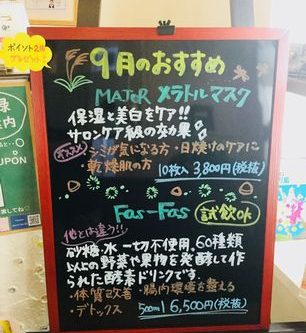 ポイント2倍
プレゼント!
9月のおすすめ
MAJOR メラトルマスク
保湿と美白をケア!!
サロンケア級の効果
オススメ
シミが気になる方・日焼けのケアに
・乾燥肌の方
10枚入 3,800円(税抜)
Fas-Fas 試飲OK
他とは違う!!
砂糖、水 一切不使用、60種類
以上の野菜や果物を発酵して作
られた酵素ドリンクです。
・体質改善・腸内環境を整える
・デトックス
500ml 6,500円(税抜)
案内
UPON